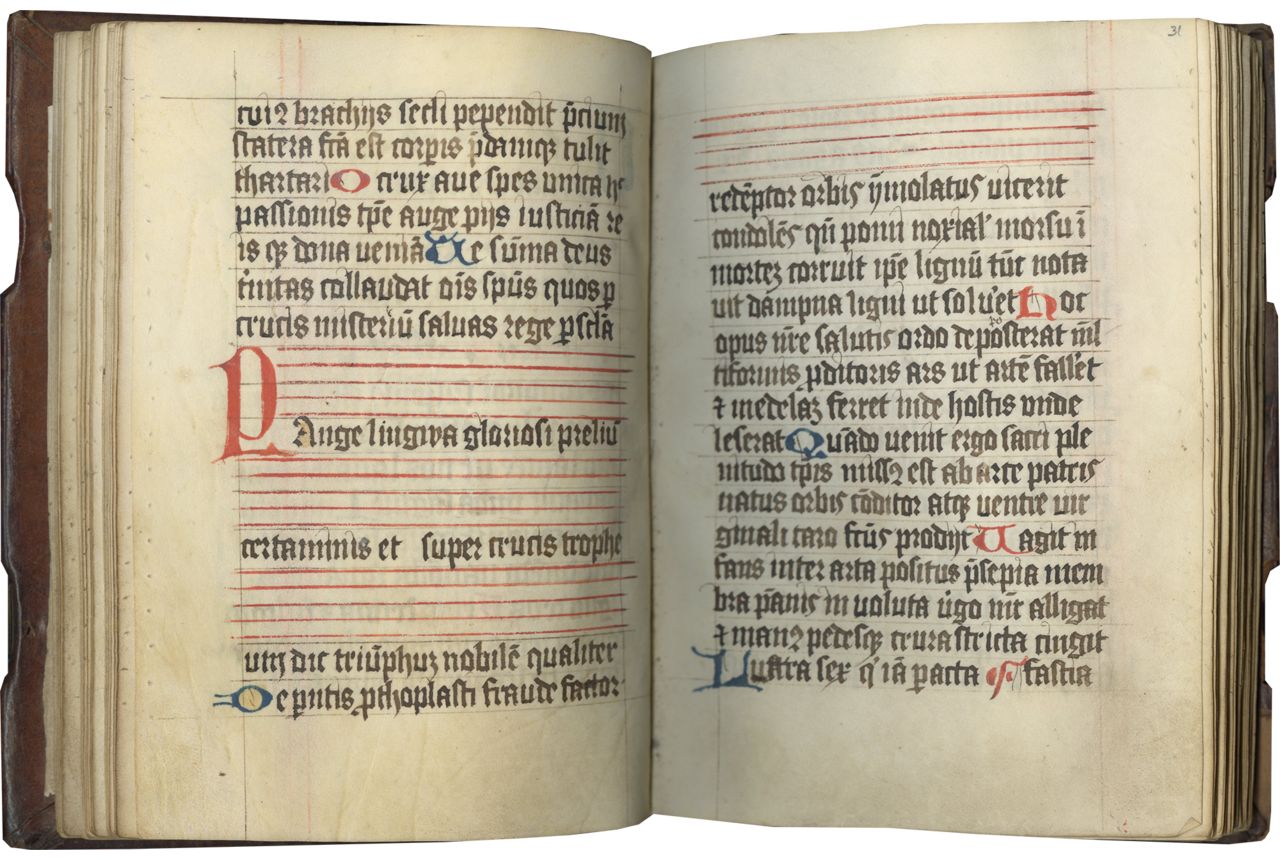 cui9 brachijs secli pependit p̄cium
statera fc̄a est corp̲is p̄damq̲ tulit
thartari O crux aue spes unica h°
passionis tp̄e auge pijs iusticiā re
is q̲ dona ueniā Te sūma deus
t'initas collaudat oīs sp̄us quos p̲
crucis misteriū saluas rege p̲ sclā
PAnge lingwa gloriosi preliū
certaminis et super crucis trophe
um dic triūphuz nobilē qualiter
De p̲ntis p̲thoplasti fraude factor
31
redēptor orbis ȳmolatus uicerit
condolēs qn̄ pomi noxial' morsu ī
mortez corruit ip̄e lignū tūc nota
uit dampna ligni ut soluˀet Hoc
opus nr̄e salutis ordo deposcerat ml̄
tiformis p̲ditoris ars ut artē falleˀt
⁊ medelaz ferret inde hostis unde
leserat Quādo uenit ergo sacri ple
nitudo tp̄is miss9 est ab arce patris
natus orbis cōditor atq̲ uentre uir
ginali caro fcūs prodijt Uagit in
fans inter arta positus p̄sepia mem
bra pānis in uoluta uˀgo mr̄ alligat
⁊ man9 pedesq̲ crura stricta cingit
Lustra sex q' iā pacta